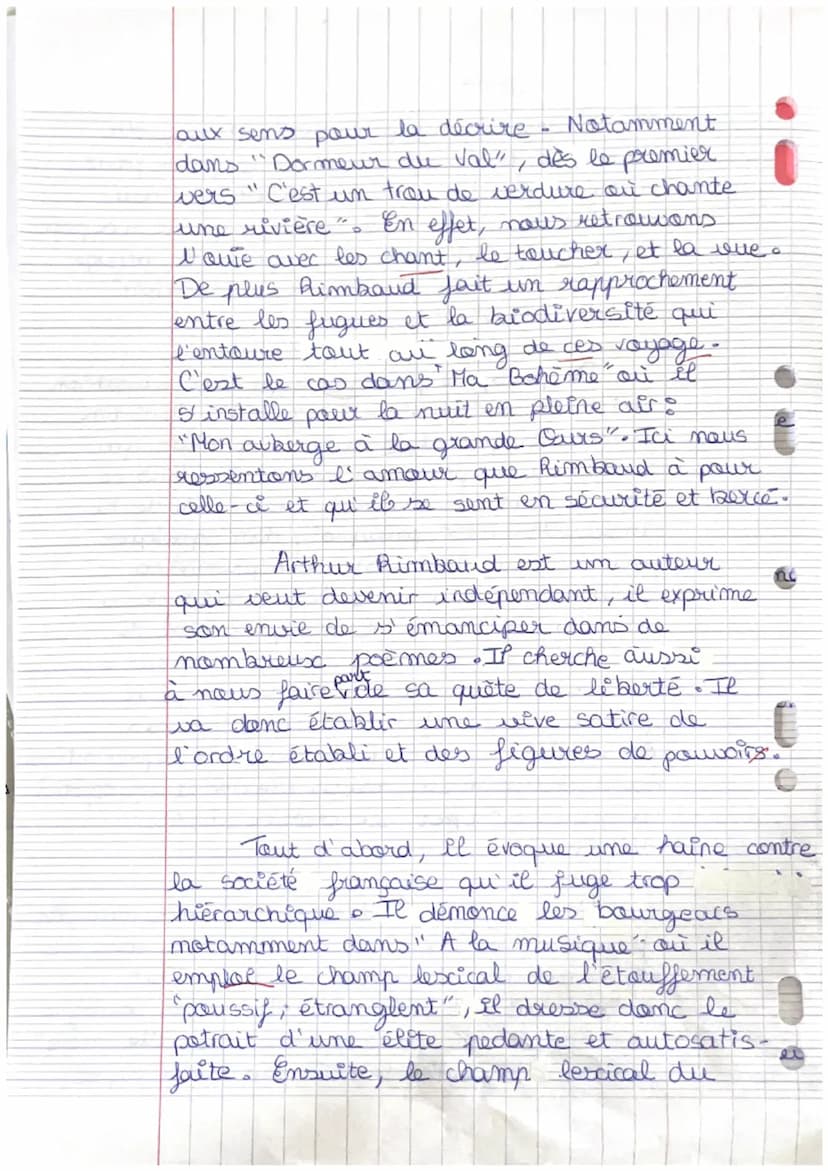 aux sens pour la décrire. Notamment
dans "Dormeur du Val", dès le premier
vers "C'est un trou de verdure où chante
une rivière". En effet, nous retrouvons
l'ouïe avec les chant, le toucher, et la vue.
De plus Rimbaud fait un rapprochement
entre les fugues et la biodiversité qui
l'entoure tout au long de ces voyage.
C'est le cas dans "Ma Bohème" où il
s'installe pour la nuit en pleine air :
"Mon auberge à la grande Ours". Ici nous
ressentons l'amour que Rimbaud à pour
celle-ci et qu'il se sent en sécurité et bercé.
Arthur Rimbaud est un auteur
qui veut devenir indépendant, il exprime
son envie de s'émanciper dans de
nombreux poèmes. Il cherche aussi
à nous faire part de sa quête de liberté. Il
va donc établir une vive satire de
l'ordre établi et des figures de pouvoirs.
Tout d'abord, il évoque une haine contre
la société française qu'il juge trop
hiérarchique. Il dénonce les bourgeois
notamment dans "A la musique" où il
emploi le champ lexical de l'étouffement
"poussif, étranglent", il dresse donc le
potrait d'une élite pedante et autosatis-
faite. Ensuite, le champ lexical du
e
nc